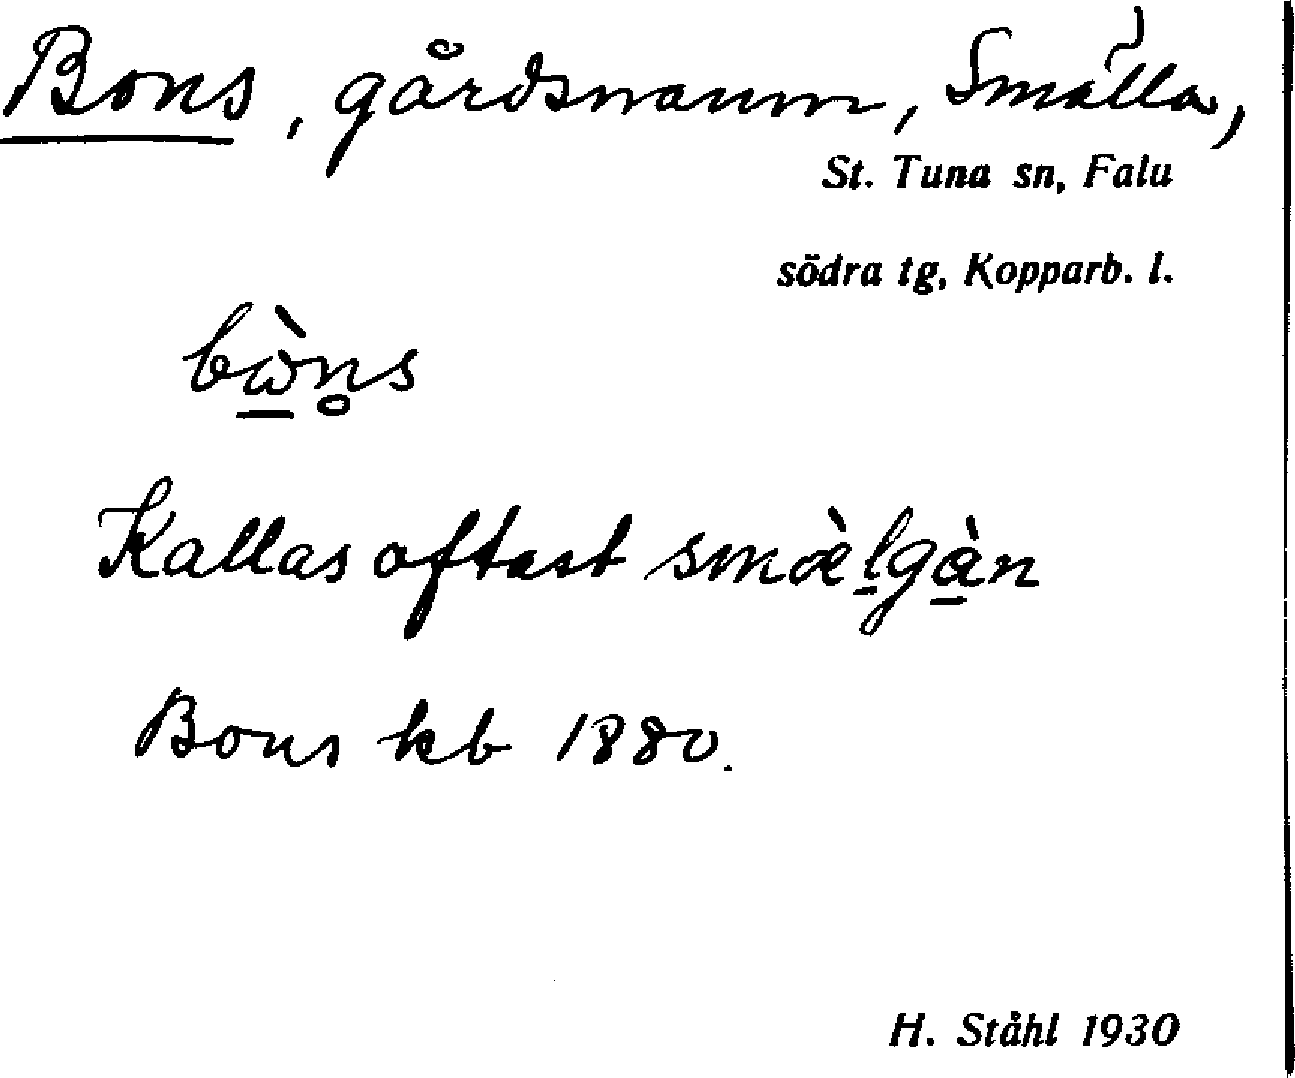 Bons, gårdsnamn, Smälla,
St. Tuna sn, Falu
södra tg, Kopparb. l.
bὼ̲n̥s
Kallas oftast smæ̀l̲gà̲n
Bons kb 1880.
H. Ståhl 1930